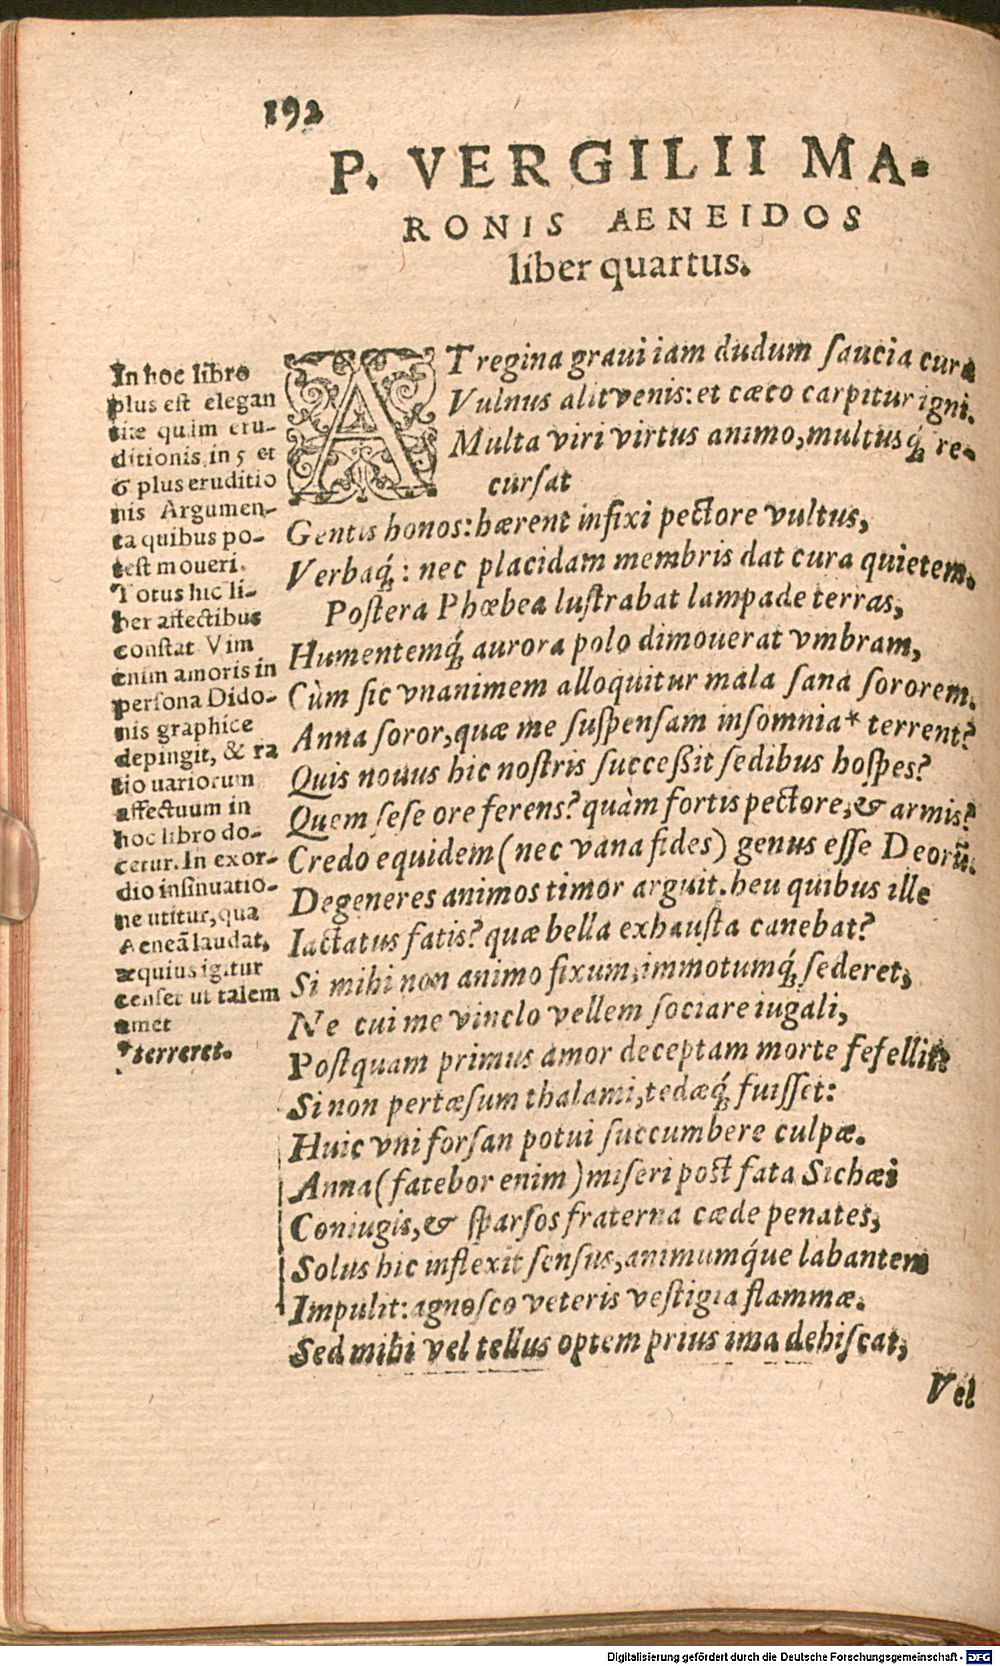 192
P. VERGILII MA-
RONIS AENEIDOS
liber quartus.
In hoc libro
plus est elegan
tiæ quàm eru-
ditionis, in 5 et
6 plus eruditio
nis Argumen-
ta quibus po-
test moueri.
Totus hic li-
ber affectibus
constat Vim
enim amoris in
persona Dido-
nis graphice
depingit, & ra
tio uariorum
affectuum in
hoc libro do-
cetur. In exor-
dio insinuatio-
ne utitur, qua
Aeneã laudat,
æquius igitur
censet ut talem
amet
*terreret.
AT regina graui iam dudum saucia cura
Vulnus alit venis: et cæco carpitur igni.
Multa viri virtus animo, multusq́; re-
cursat
Gentis honos: hærent infixi pectore vultus,
Verbaq́;: nec placidam membris dat cura quietem.
Postera Phœbea lustrabat lampade terras,
Humentemq́; aurora polo dimouerat vmbram,
Cùm sic vnanimem alloquitur mala sana sororem.
Anna soror, quæ me suspensam insomnia* terrent?
Quis nouus hic nostris successit sedibus hospes?
Quem sese ore ferens? quàm fortis pectore, & armis?
Credo equidem (nec vana fides) genus esse Deorũ.
Degeneres animos timor arguit. heu quibus ille
Iactatus fatis? quæ bella exhausta canebat?
Si mihi non animo fixum, immotumq́; sederet,
Ne cui me vinclo vellem sociare iugali,
Postquam primus amor deceptam morte fefellit:
Si non pertæsum thalami, tedæq́; fuisset:
Huic vni forsan potui succumbere culpæ.
Anna (fatebor enim) miseri post fata Sichæi
Coniugis, & sparsos fraterna cæde penates,
Solus hic inflexit sensus, animumq́ue labantem
Impulit: agnosco veteris vestigia flammæ.
Sed mihi vel tellus optem prius ima dehiscat,
Vel
Digitalisierung gefördert durch die Deutsche Forschungsgemeinschaft - DFG